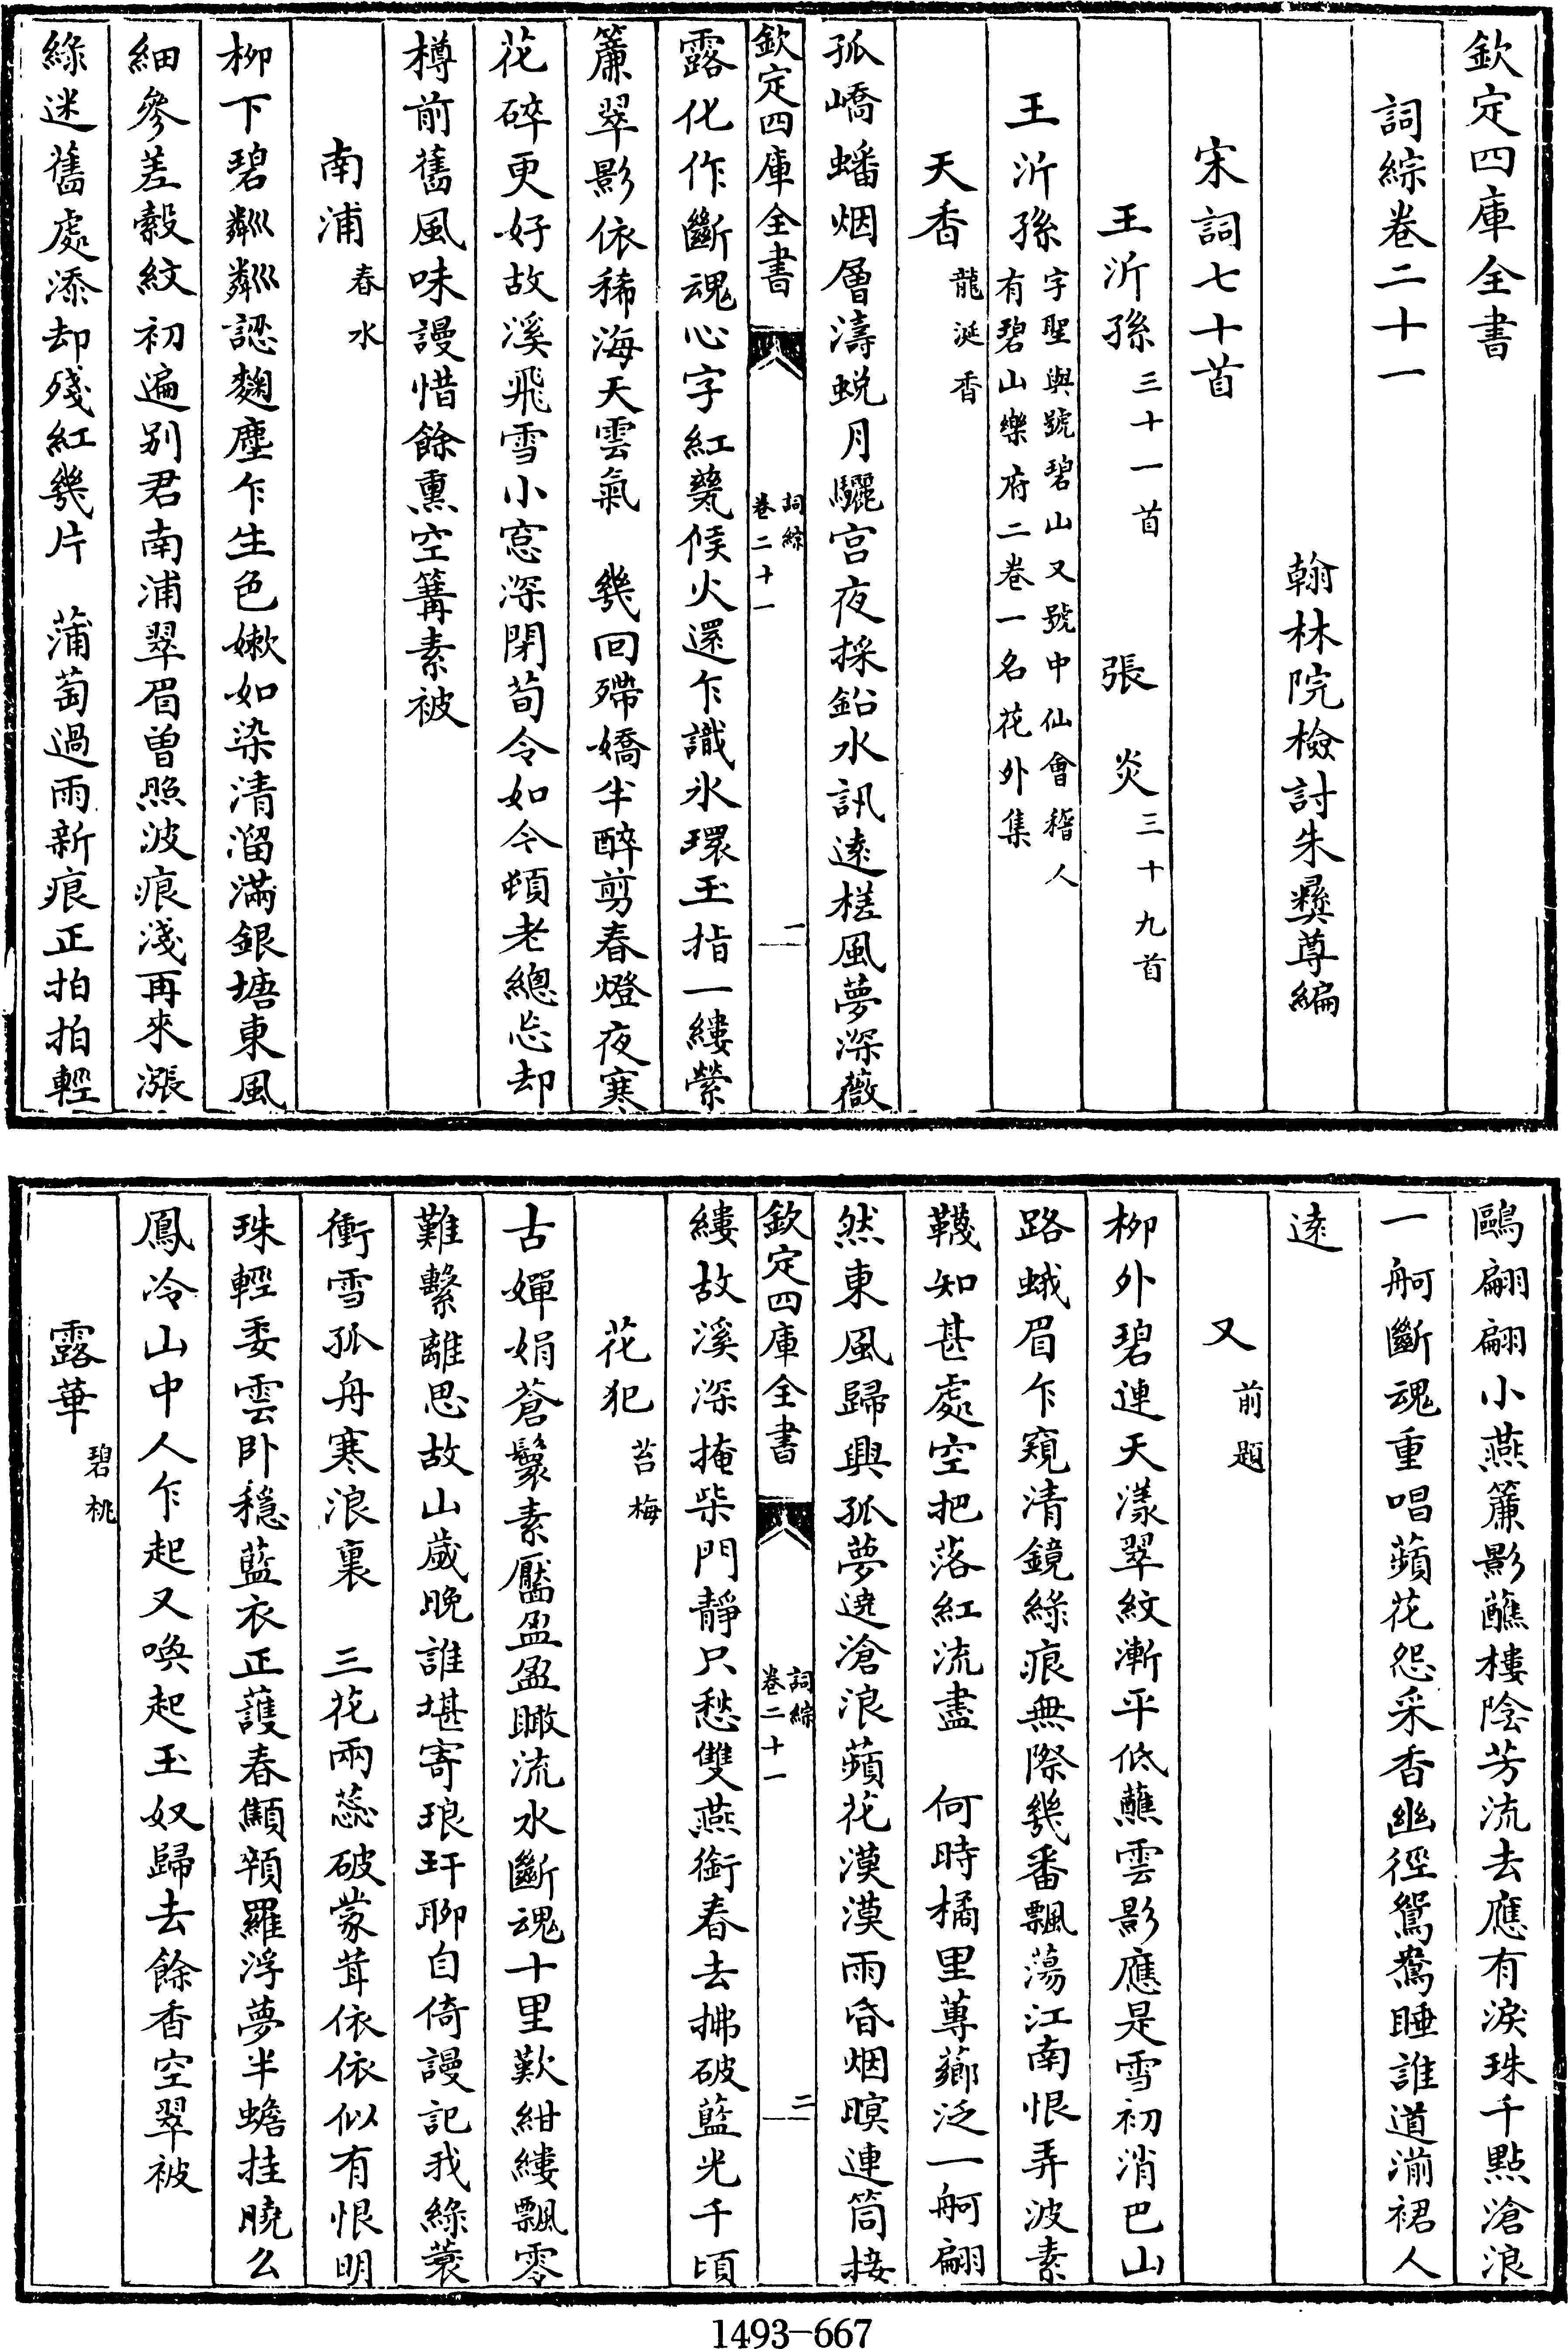 欽定四庫全書
詞綜卷二十一
翰林院檢討朱彛尊編
宋詞七十首
王沂孫三十一首　張炎三十九首
王沂孫字聖與號碧山又號中仙會稽人有碧山樂府二卷一名花外集
天香龍涎香
孤嶠蟠烟層濤蛻月驪宫夜採鉛水訊逺槎風夢深薇
欽定四庫全書　詞綜卷二十一　一
露化作斷魂心字紅甆候火還乍識氷環玉指一縷縈
簾翠影依稀海天雲氣　幾回殢嬌半醉剪春燈夜寒
花碎更好故溪飛雪小窓深閉荀令如今頓老總忘却
樽前舊風味謾惜餘熏空篝素被
南浦春水
柳下碧粼粼認麴塵乍生色嫩如染清溜滿銀塘東風
細參差縠紋初遍别君南浦翠眉曽照波痕淺再來漲
綠迷舊處添却殘紅幾片　蒲萄過雨新痕正拍拍輕
鷗翩翩小燕簾影蘸樓陰芳流去應有淚珠千點滄浪
一舸斷魂重唱蘋花怨采香幽徑鴛鴦睡誰道湔裙人
逺
又前題
柳外碧連天漾翠紋漸平低蘸雲影應是雪初消巴山
路蛾眉乍窺清鏡綠痕無際幾番飄蕩江南恨弄波素
韈知甚處空把落紅流盡　何時橘里蓴薌泛一舸翩
然東風歸興孤夢遶滄浪蘋花漠漠雨昏烟暝連筒接
欽定四庫全書　詞綜卷二十一　二
縷故溪深掩柴門靜只愁雙燕銜春去拂破藍光千頃
花犯苔梅
古嬋娟蒼鬟素靨盈盈瞰流水斷魂十里歎紺縷飄零
難繫離思故山歲晚誰堪寄琅玕聊自倚謾記我綠蓑
衝雪孤舟寒浪裏　三花兩蕊破蒙茸依依似有恨明
珠輕委雲卧穏藍衣正䕶春顦顇羅浮夢半蟾挂曉幺
鳳冷山中人乍起又喚起玉奴歸去餘香空翠被
露華碧桃
1493-667